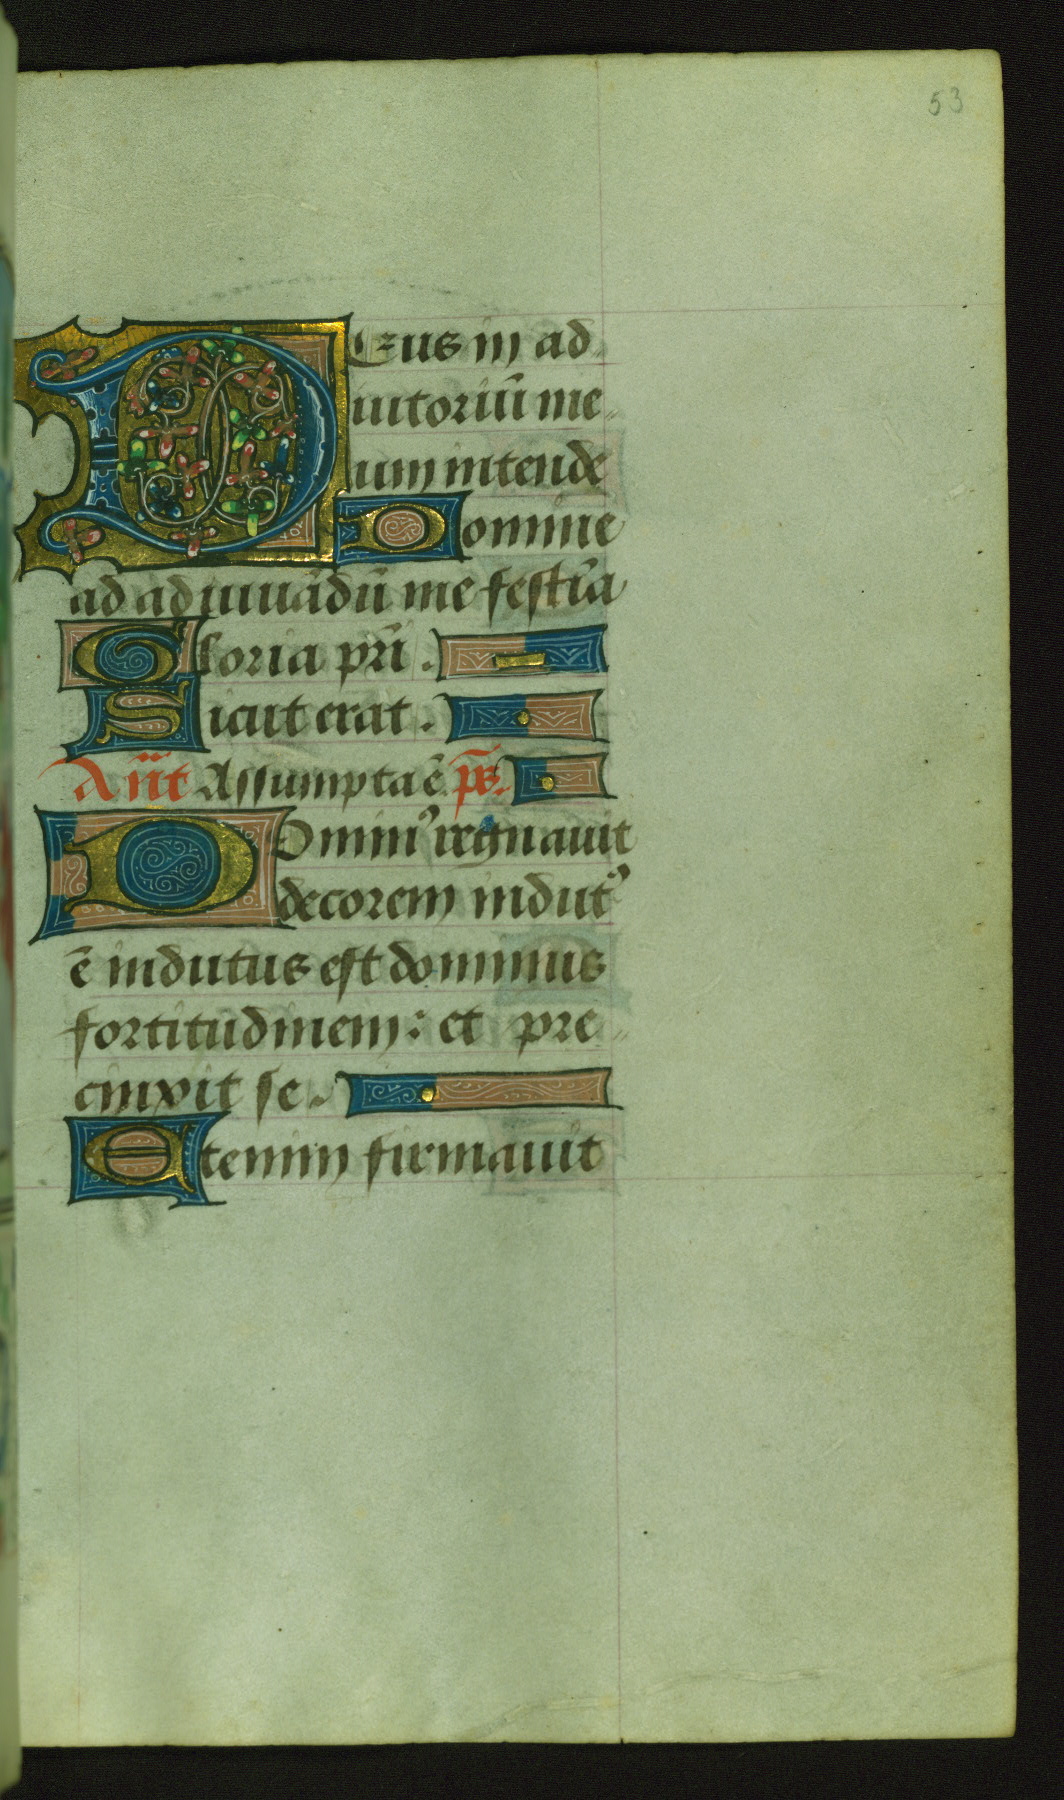 53
DEus in ad
iutoriū me
um intende
Domine
ad adiuuādū me festīa
Gloria pr̄i .
Sicut erat .
Ant̄ Assumpta ē. ps̄.
DOmin⁹ regnauit
decorem indut⁹
ē indutus est dominus
fortitudinem : et pre
cinxit se .
Etenim firmauit